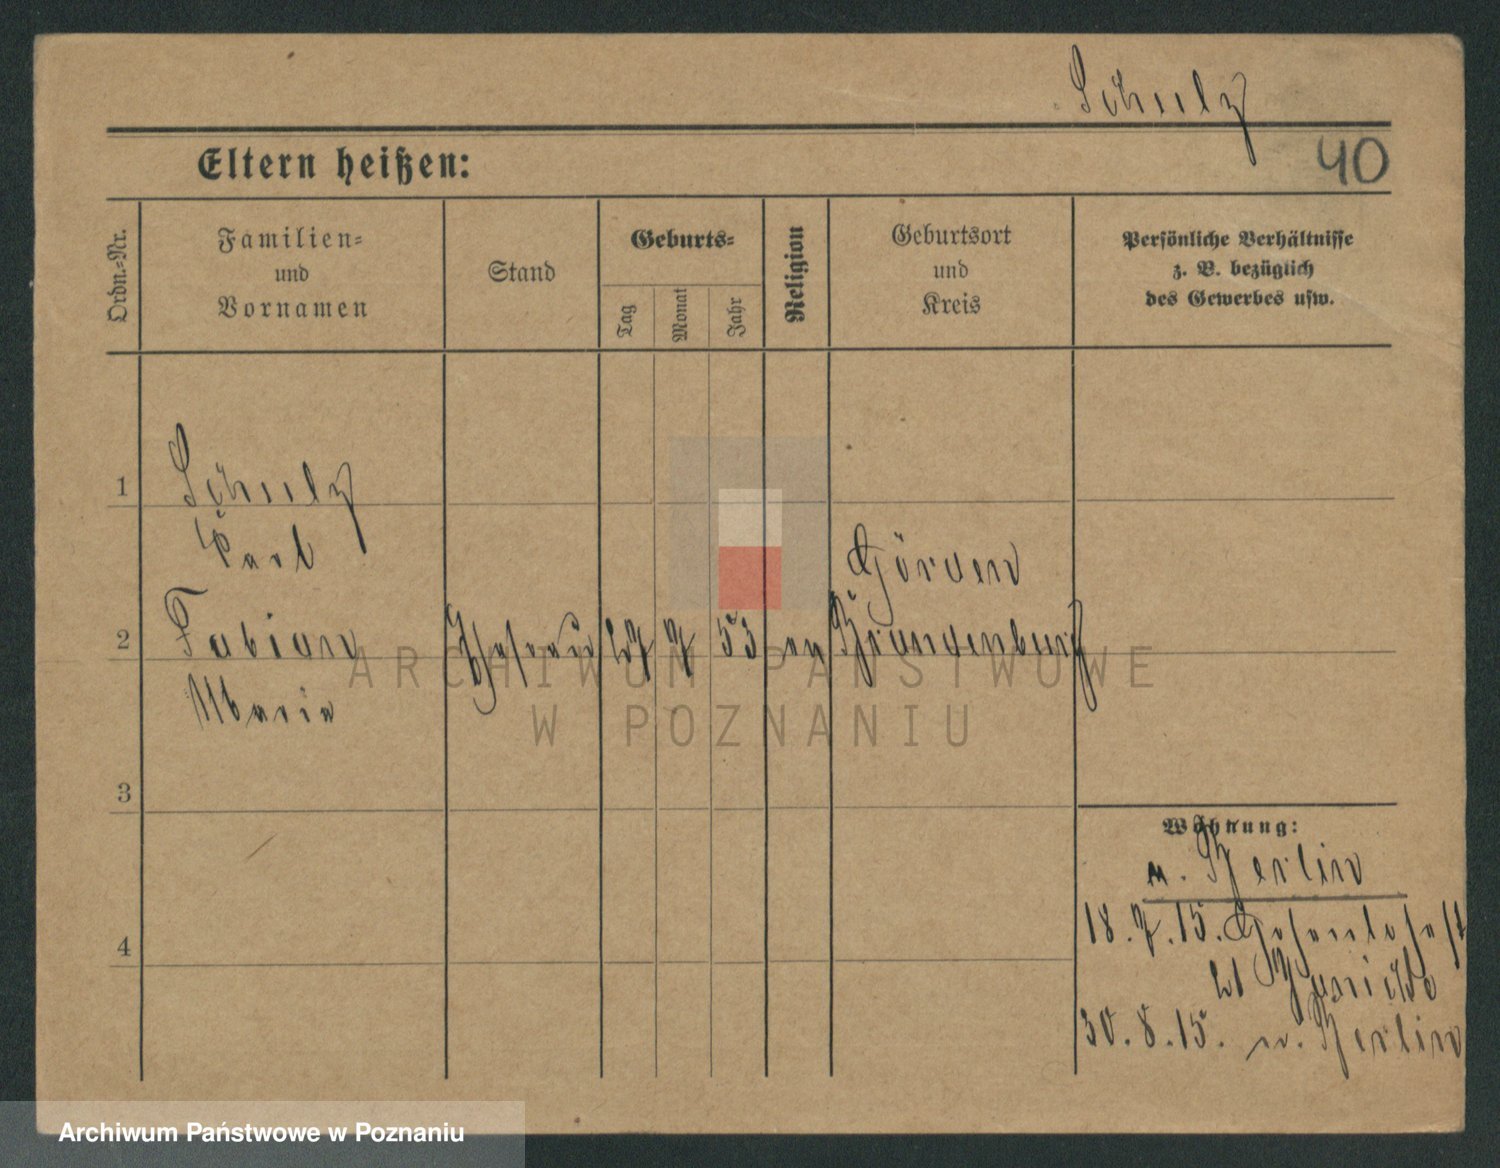 Schulz
40
Eltern heißen:
Ordn.-Nr.
Familien-
und
Vornamen
Stand
Geburts-
Tag
Monat
Jahr
Religion
Geburtsort
und
Kreis
Persönliche Verhältnisse
z. B. bezüglich
des Gewerbes usw.
1
Schulz
Karl
2
Fabian
Ehefrau
7
53
ev
Görden
Brandenburg
Maria
3
4
Wohnung:
n. Berlin
18.7.15.
30.8.15. n. Berlin
ARCHIWUM PAŃSTWOWE
W POZNANIU
Archiwum Państwowe w Poznaniu